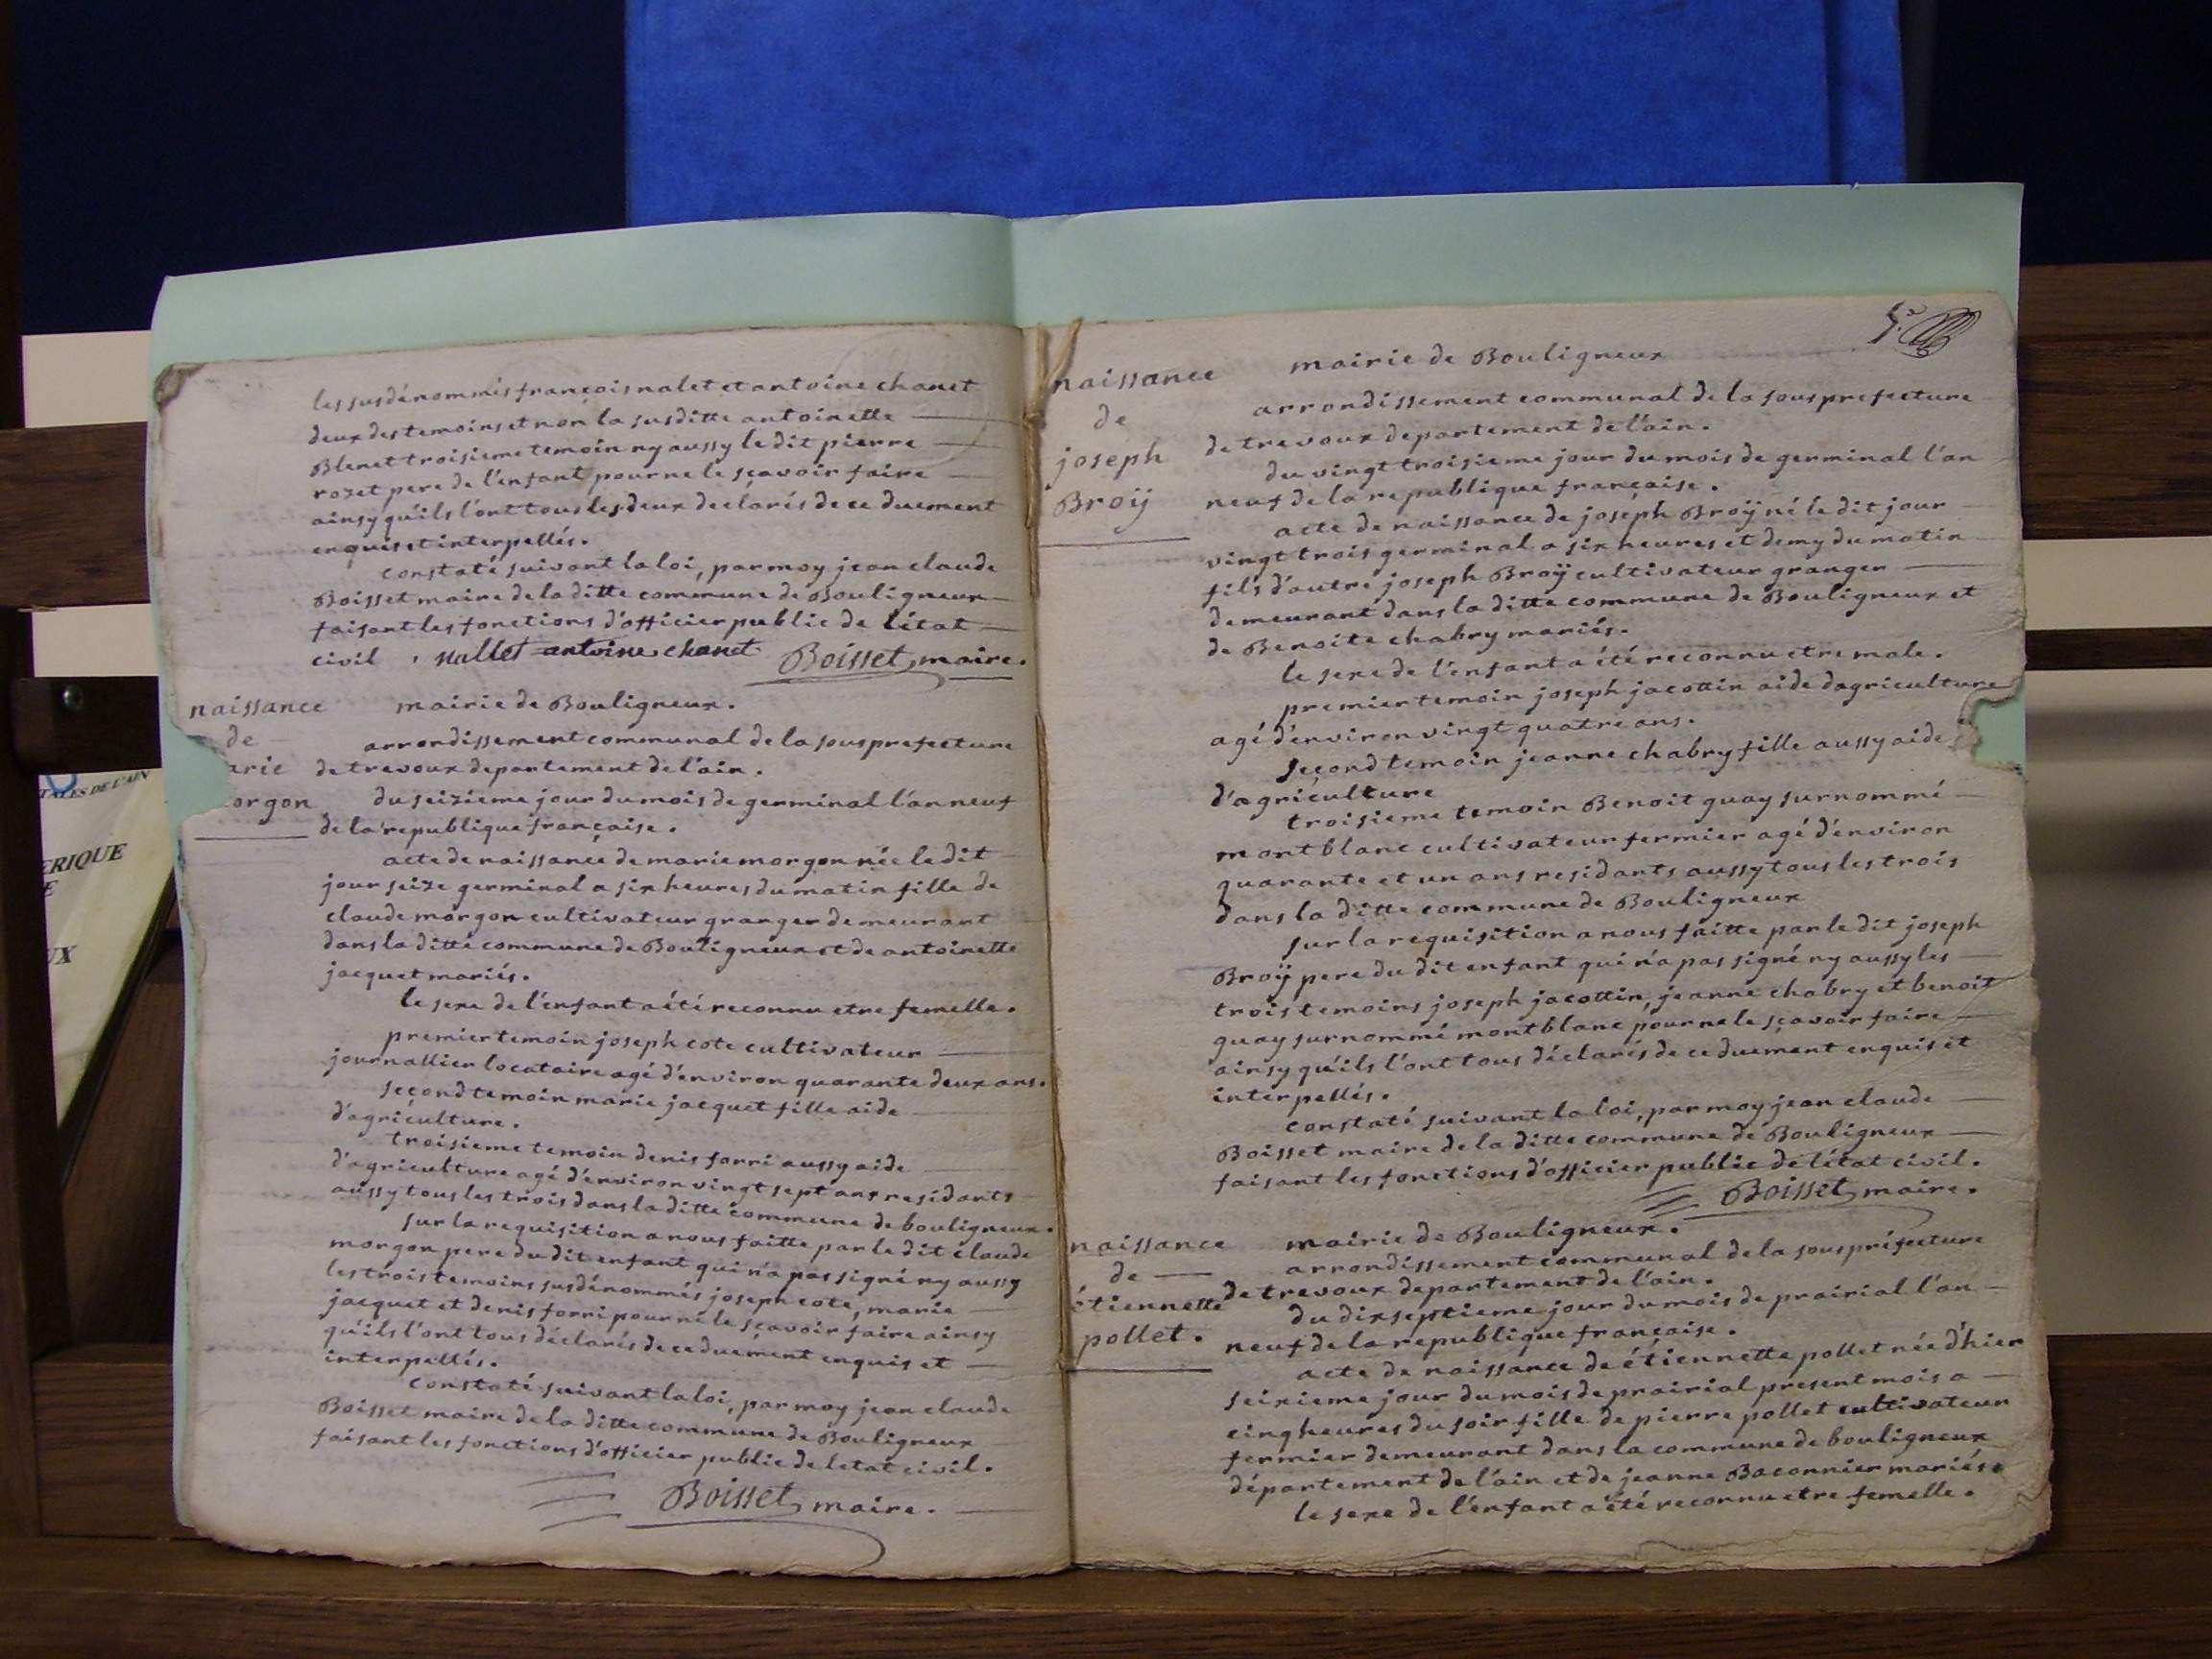 les susdénommés françois nalet et antoine chanet
deux des temoins et non la susditte antoinette
Blenet troisieme temoin ny aussy le dit pierre
rozet pere de l'enfant pour ne le sçavoir faire
ainsy qu'ils l'ont tous les deux declarés de ce duement
enquis et interpellés.
constaté suivant la loi, par moy jean claude
Boisset maire de la ditte commune de Bouligneux
faisant les fonctions d'officier public de l'état
civil nallet antoine chanet Boisset maire.
naissance
de
arie
orgon
mairie de Bouligneux.
arrondissement communal de la sous prefecture
de trevoux departement de l'ain.
du seizieme jour du mois de germinal l'an neuf
de la republique française.
acte de naissance de marie morgon née le dit
jour seize germinal a six heures du matin fille de
claude morgon cultivateur granger demeurant
dans la ditte commune de Bouligneux et de antoinette
jacquet mariés.
le sexe de l'enfant a été reconnu etre femelle.
premier temoin joseph cote cultivateur
journallier locataire agé d'environ quarante deux ans.
second temoin marie jacquet fille aide
d'agriculture.
troisieme temoin denis forri aussy aide
d'agriculture agé d'environ vingt sept ans residants
aussy tous les trois dans la ditte commune de bouligneux.
sur la requisition a nous faitte par le dit claude
morgon pere du dit enfant qui n'a pas signé ny aussy
les trois temoins susdénommés joseph cote, marie
jacquet et denis forri pour ne le sçavoir faire ainsy
qu'ils l'ont tous déclarés de ce duement enquis et
interpellés.
constaté suivant la loi, par moy jean claude
Boisset maire de la ditte commune de Bouligneux
faisant les fonctions d'officier public de letat civil.
Boisset maire.
5.e
naissance
de
joseph
Broÿ
mairie de Bouligneux
arrondissement communal de la sous prefecture
de trevoux departement de l'ain.
du vingt troisieme jour du mois de germinal l'an
neuf de la republique française.
acte de naissance de joseph Broÿ né le dit jour
vingt trois germinal a six heures et demy du matin
fils d'autre joseph Broÿ cultivateur granger
demeurant dans la ditte commune de Bouligneux et
de Benoite chabry mariés.
le sexe de l'enfant a été reconnu etre male.
premier temoin joseph jacottin aide dagriculture
agé d'environ vingt quatre ans.
second temoin jeanne chabry fille aussy aide
d'agriculture
troisieme temoin Benoit guay surnommé
montblanc cultivateur fermier agé d'environ
quarante et un ans residants aussy tous les trois
dans la ditte commune de Bouligneux
sur la requisition a nous faitte par le dit joseph
Broÿ pere du dit enfant qui n'a pas signé ny aussy les
trois temoins joseph jacottin, jeanne chabry et benoit
guay surnommé montblanc pour ne le sçavoir faire
ainsy qu'ils l'ont tous déclarés de ce duement enquis et
interpellés.
constaté suivant la loi, par moy jean claude
Boisset maire de la ditte commune de Bouligneux
faisant les fonctions d'officier public de l'état civil.
Boisset maire.
naissance
de
étiennette
pollet.
mairie de Bouligneux.
arrondissement communal de la sous préfecture
de trevoux departement de l'ain.
du dix septieme jour du mois de prairial l'an
neuf de la republique française.
acte de naissance de étiennette pollet née d'hier
seixieme jour du mois de prairial present mois a
cinq heures du soir fille de pierre pollet cultivateur
fermier demeurant dans la commune de bouligneux
département de l'ain et de jeanne Baconnier mariés.
le sexe de l'enfant a été reconnu etre femelle.
ERIQUE
E
UX